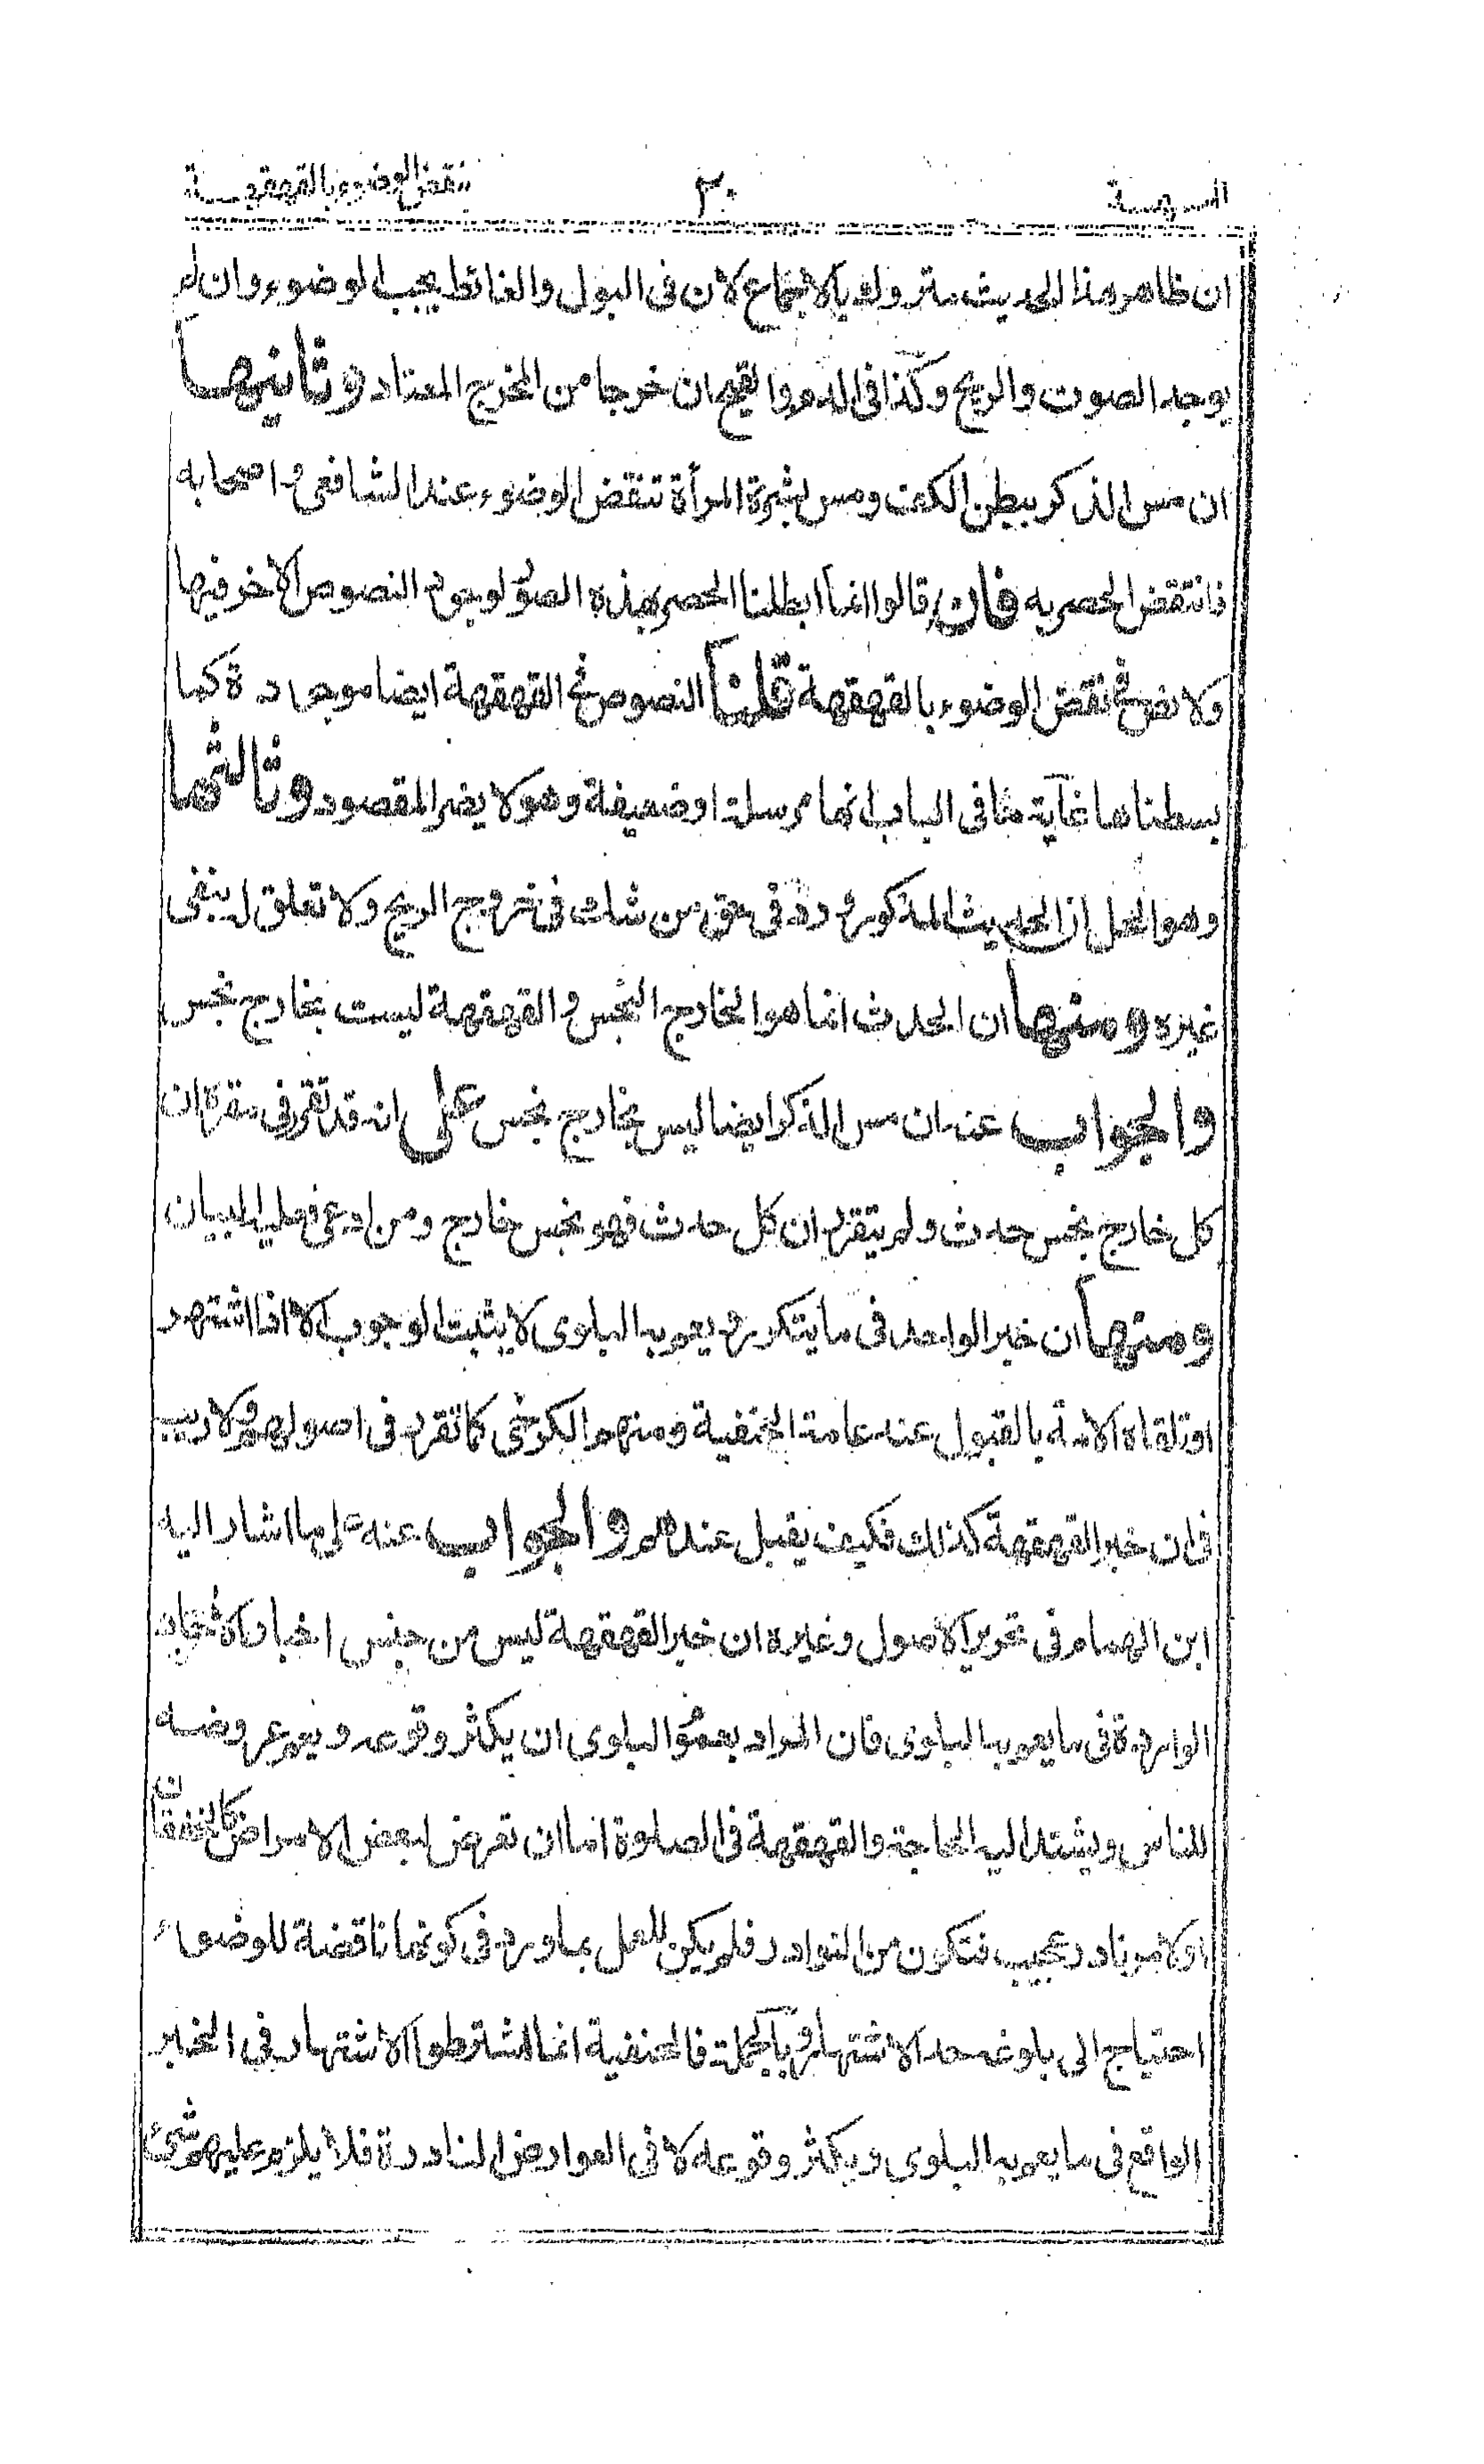 الهسهسة ٣٠ بنقض الوضوء بالقهقهة
ان ظاهر هذا الحديث متروك بالاجماع لان فى البول والغائط يجب الوضوء وان لم
يوجد الصوت والريح وكذا فى الدم والقيح ان خرجا من المخرج المعتاد وثانيها
ان مس الذكر ببطن الكف ومس بشرة المرأة تنقض الوضوء عند الشافعى واصحابه
فانتقض الحصر به فان قالوا انما ابطلنا الحصر بهذه الصور لوجود النصوص الاخر فيها
ولا نص فى نقض الوضوء بالقهقهة قلنا النصوص فى القهقهة ايضا موجودة كما
بسطناها غاية ما فى الباب انها مرسلة او ضعيفة وهو لا يضر المقصود وثالثها
وهو الحل ان الحديث المذكور ورد فى حق من شك فى خروج الريح ولا تعلق له بنفى
غيره ومنها ان الحدث انما هو الخارج النجس والقهقهة ليست بخارج نجس
والجواب عنه ان مس الذكر ايضا ليس بخارج نجس على انه قد تقرر فى مقره ان
كل خارج نجس حدث ولم يتقرر ان كل حدث فهو نجس خارج ومن ادعى فعليه البيان
ومنها ان خبر الواحد فى ما يتكرر ويعم به البلوى لا يثبت الوجوب الا اذا اشتهر
او تلقاه الامة بالقبول عند عامة الحنفية ومنهم الكرخى كما تقرر فى اصولهم ولا ريب
فى ان خبر القهقهة كذلك فكيف يقبل عندهم والجواب عنه على ما اشار اليه
ابن الهمام فى تحرير الاصول وغيره ان خبر القهقهة ليس من جنس اخبار الآحاد
الواردة فى ما يعم به البلوى فان المراد بعموم البلوى ان يكثر وقوعه ويعم عروضه
للناس ويشتد اليه الحاجة والقهقهة فى الصلوة اما ان تعرض لبعض الامراض كالخفقان
او لامر نادر عجيب فتكون من النوادر فلم يكن للعمل بما ورد فى كونها ناقضة للوضوء
احتياج الى بلوغه حد الاشتهار وبالجملة فالحنفية انما اشترطوا الاشتهار فى الخبر
الواقع فى ما يعم به البلوى ويكثر وقوعه لا فى العوارض النادرة فلا يلزم عليهم شئ